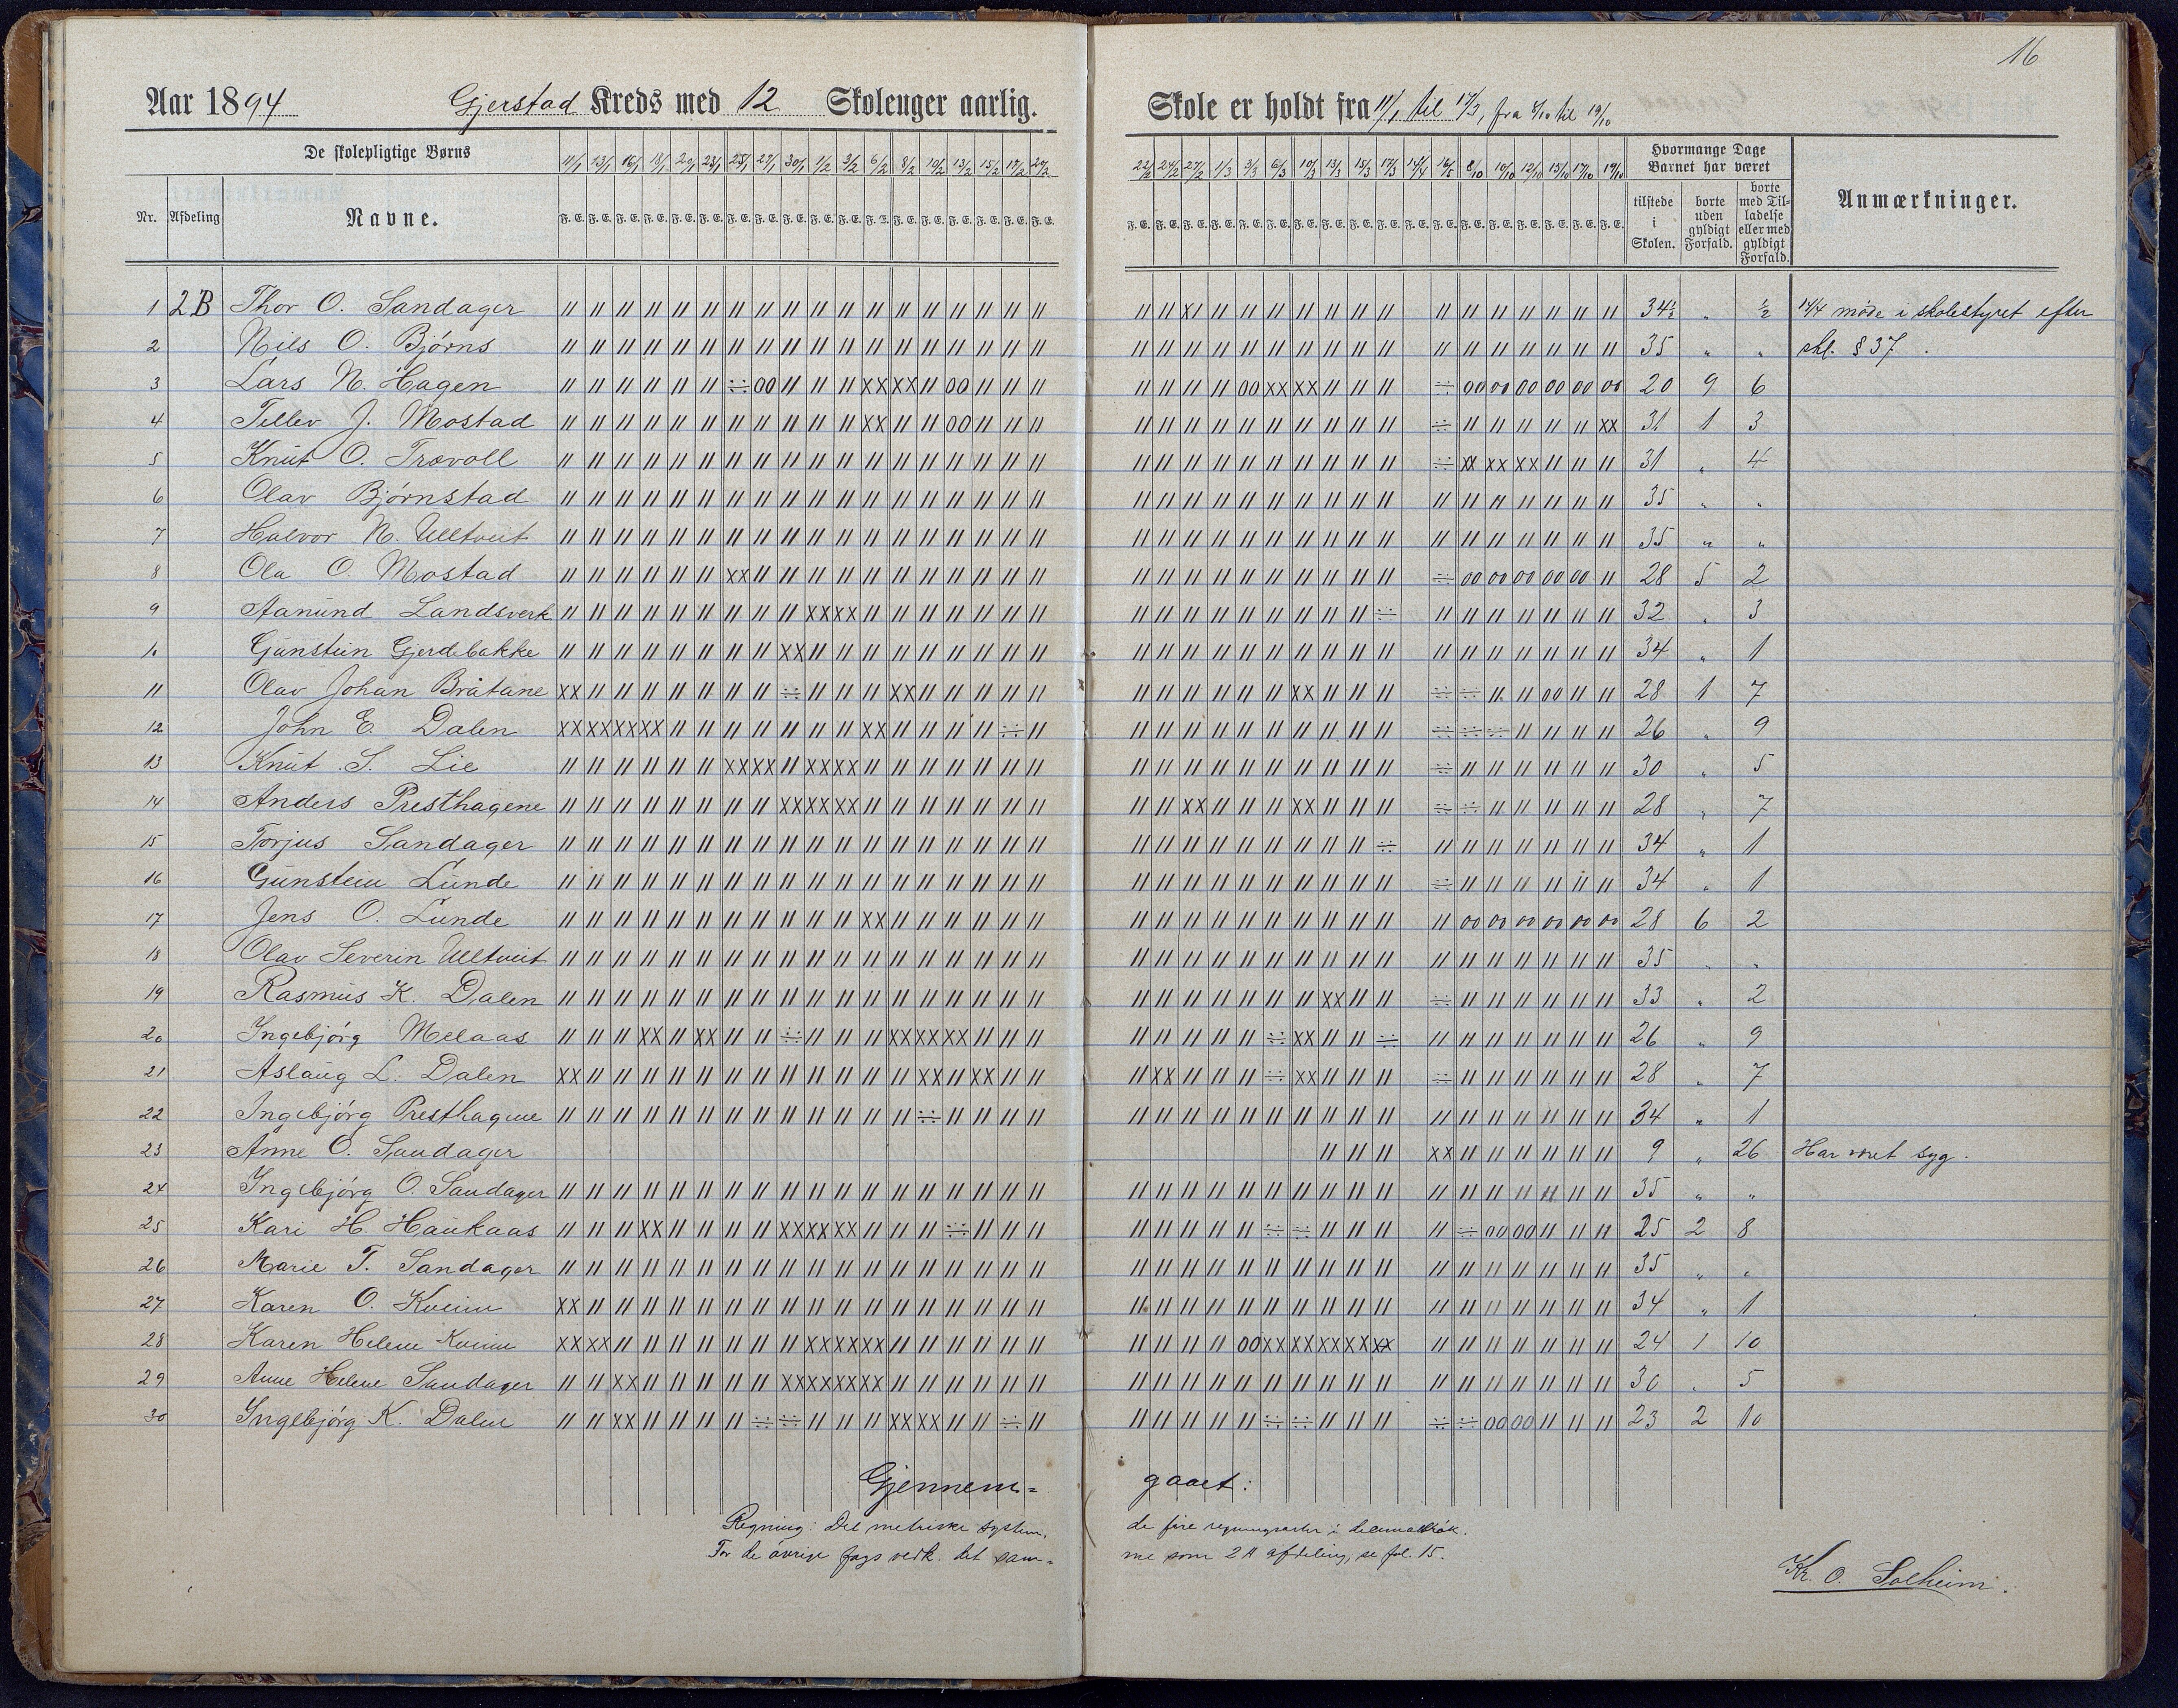 16
Aar 1894 Gjerstad Kreds med 12 Skolenger aarlig. Skole er holdt fra 11/1 til 17/3, fra 8/10 til 19/10
De skolepligtige Børns
11/1 13/1 16/1 18/1 20/1 23/1 25/1 27/1 30/1 1/2 3/2 6/2 8/2 10/2 13/2 15/2 17/2 20/2 22/2 24/2 27/2 1/3 3/3 6/3 10/3 13/3 15/3 17/3 14/4 16/5 8/10 10/10 12/10 15/10 17/10 19/10
Hvormange Dage Barnet har været
Nr. Afdeling Navne. F. E. tilstede i Skolen. borte uden gyldigt Forfald. borte med Tilladelse eller med gyldigt Forfald. Anmærkninger.
1 2B Thor O. Sandager 34½ „ ½ 14/4 møde i skolestyret efter
2 Nils O. Bjørns 35 „ „ skl. § 37.
3 Lars N. Hagen 20 9 6
4 Tellev J. Mostad 31 1 3
5 Knut O. Trovoll 31 „ 4
6 Olav Bjørnstad 35 „ „
7 Halvor N. Ulltveit 35 „ „
8 Ola O. Mostad 28 5 2
9 Aanund Landsverk 32 „ 3
10 Gunstein Gjerdebakke 34 „ 1
11 Olav Johan Bråtane 28 1 7
12 John E. Dalen 26 „ 9
13 Knut S. Lie 30 „ 5
14 Anders Presthagene 28 „ 7
15 Torjus Sandager 34 „ 1
16 Gunstein Lunde 34 „ 1
17 Jens O. Lunde 28 6 2
18 Olav Severin Ulltveit 35 „ „
19 Rasmus K. Dalen 33 „ 2
20 Ingebjørg Melaas 26 „ 9
21 Aslaug L. Dalen 28 „ 7
22 Ingebjørg Presthagene 34 „ 1
23 Anne O. Sandager 9 „ 26 Har vært syg.
24 Ingebjørg O. Sandager 35 „ „
25 Kari H. Haukaas 25 2 8
26 Marie T. Sandager 35 „ „
27 Karen O. Kveim 34 „ 1
28 Karen Helene Kveim 24 1 10
29 Anne Helene Sandager 30 „ 5
30 Ingebjørg K. Dalen 23 2 10
Gjennem= gaaet:
Regning: Det metriske system, de fire regningsarter i decimalbrøk.
For de øvrige fags vedk. det sam= me som 2 A afdeling, se fol. 15.
Kr. O. Solheim.